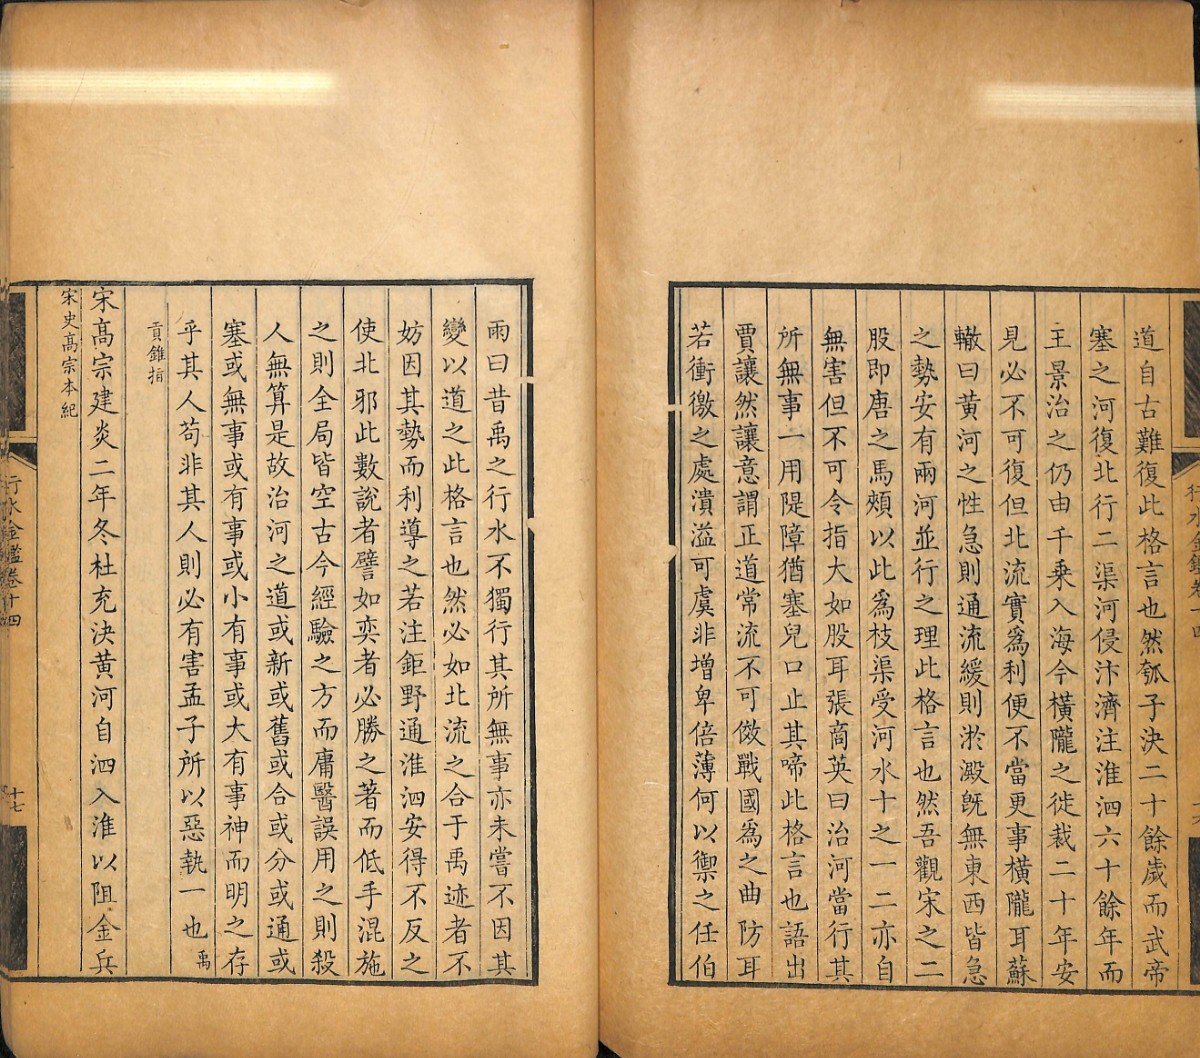 道自古難復此格言也然瓠子決二十餘歲而武帝
塞之河復北行二渠河侵汴濟注淮泗六十餘年而
王景治之仍由千乘入海今橫隴之徙裁二十年安
見必不可復但北流實爲利便不當更事橫隴耳蘇
轍曰黃河之性急則通流緩則淤澱旣無東西皆急
之勢安有兩河並行之理此格言也然吾觀宋之二
股即唐之馬頰以此爲枝渠受河水十之一二亦自
無害但不可令指大如股耳張商英曰治河當行其
所無事一用隄障猶塞兒口止其啼此格言也語出
賈讓然讓意謂正道常流不可倣戰國爲之曲防耳
若衝徼之處潰溢可虞非增卑倍薄何以禦之任伯
雨曰昔禹之行水不獨行其所無事亦未嘗不因其
變以道之此格言也然必如北流之合于禹迹者不
妨因其勢而利導之若注鉅野通淮泗安得不反之
使北邪此數說者譬如奕者必勝之著而低手混施
之則全局皆空古今經驗之方而庸醫誤用之則殺
人無算是故治河之道或新或舊或合或分或通或
塞或無事或有事或小有事或大有事神而明之存
乎其人苟非其人則必有害孟子所以惡執一也禹
貢錐指
宋高宗建炎二年冬杜充決黃河自泗入淮以阻金兵
宋史高宗本紀
行水金鑑卷十四
十七